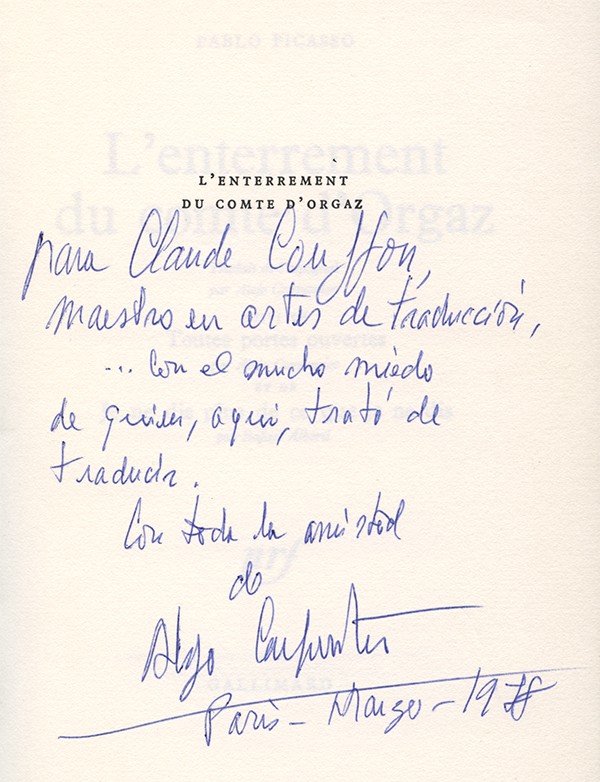 PABLO PICASSO
L'enterrement
du comte d'Orgaz
L'ENTERREMENT
DU COMTE D'ORGAZ
para Claude Couffon,
maestro en artes de traducción,
... con el mucho miedo
de quien, aquí, trató de
traducir.
Con toda la amistad
de
Alejo Carpentier
Paris - Marzo - 1978
Toutes portes ouvertes
nrf
GALLIMARD